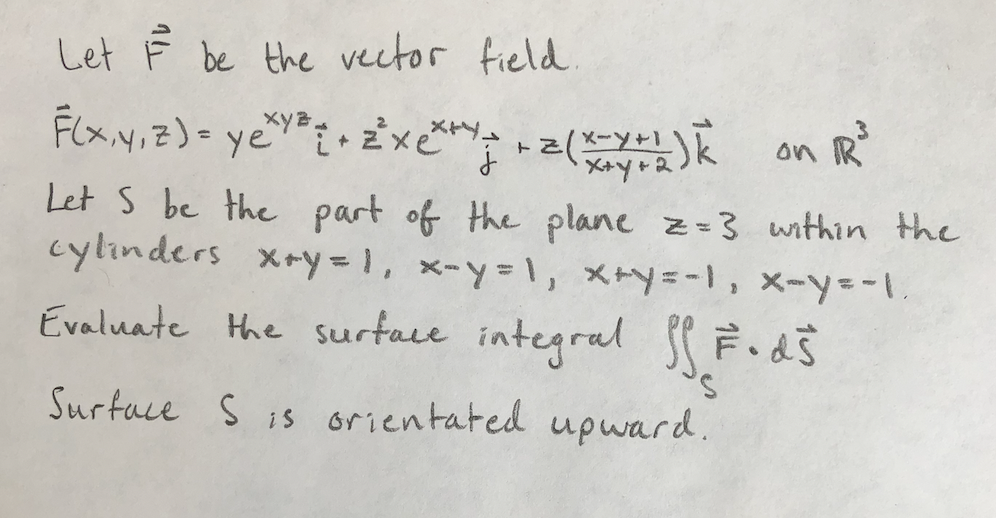 Let F⃗ be the vector field.
F⃗(x,y,z) = ye^{xyz} i⃗ + z²xe^{x+y} j⃗ + z((x-y+1)/(x+y+2)) k⃗ on ℝ³
Let S be the part of the plane z=3 within the
cylinders x+y=1, x-y=1, x+y=-1, x-y=-1.
Evaluate the surface integral ∬_S F⃗ · dS⃗
Surface S is orientated upward.